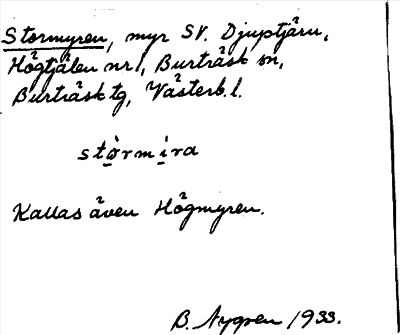 Stormyren, myr SV. Djuptjärn,
Högtjälen nr 1, Burträsk sn,
Burträsk tg, Västerb. l.
stòrmìra
Kallas även Högmyren.
B. Nygren 1933.